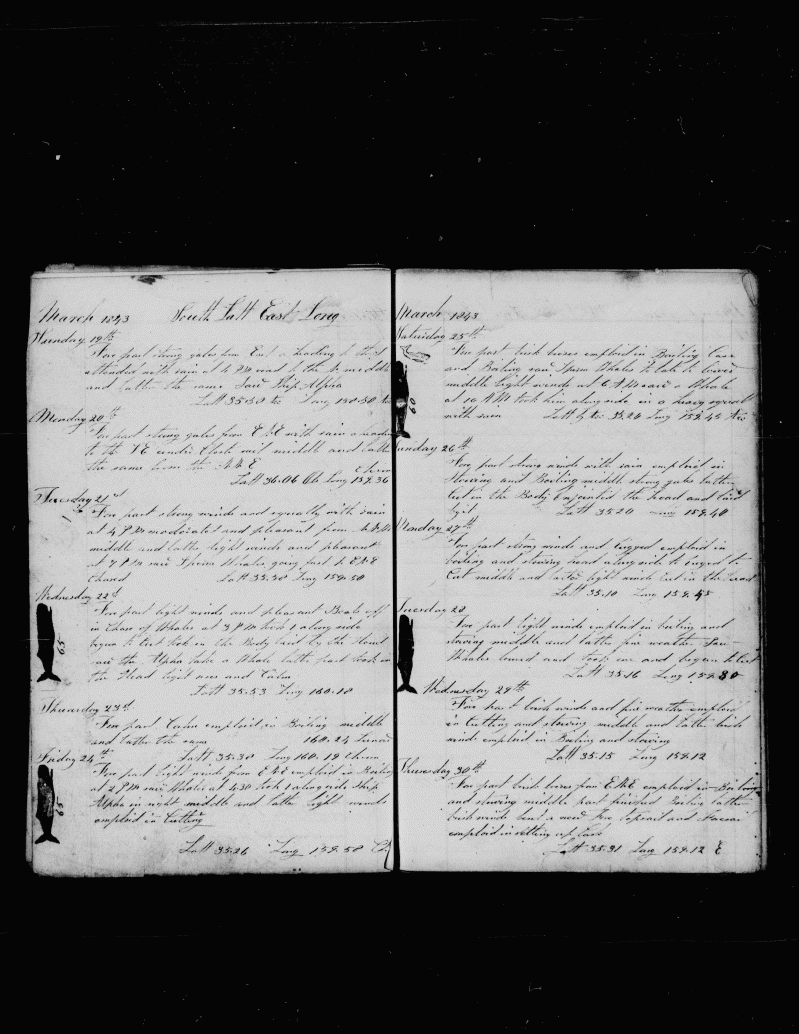 March 1843 South Latt East Long
Sunday 19th
Fore part strong gales from East a heading to the
attended with rain at 4 PM wore to the N middle
and latter the same Saw Ship Alpha
Latt 35.50 Long 150.50
Monday 20th
Fore part strong gales from ENE with rain a heading
to the NE under Close reef middle and latter
the same from the NNE
Latt 36.06 Ob Long 159.36 Chron
Tuesday 21st
Fore part strong winds and squally with rain
at 4 PM moderated and pleasant from
middle and latter light winds and pleasant
at 7 PM saw Sperm Whales going fast to ENE
Chased Latt 35.58 Long 159.50
Wednesday 22d
Fore part light winds and pleasant Boats off
in Chase of Whales at 3 PM took 1 along side
began to Cut took in the Body laid by the Head
saw the Alpha take a Whale latter part took in
the Head light airs and Calm
65
Latt 35.53 Long 160.18
Thursday 23d
Fore part Calm emploid in Boiling middle
and latter the same 160.24 Lunar
Latt 35.38 Long 160.19 Chron
Friday 24th
Fore part light winds from ENE emploid in Boiling
at 2 PM saw Whales at 4.30 took 1 alongside Ship
Alpha in sight middle and latter light winds
emploid in Cutting
65
Latt 35.26 Long 159.58
March 1843
Saturday 25th
Fore part brisk breeses emploid in Boiling Case
and Boiling saw Sperm Whales to late to lower
middle light winds at 6 AM saw a Whale
at 10 AM took him along side in a heavy squall
with rain Latt by 35.26 Long 159.45
60
Sunday 26th
Fore part strong winds with rain emploid in
Stowing and Boiling middle strong gales latter
cut in the Body the head and laid
by it Latt 35.20 Long 159.40
Monday 27th
Fore part strong winds and rugged emploid in
boiling and stowing head along side to ruged to
Cut middle and latter light winds Cut in the head
Latt 35.10 Long 159.45
Tuesday 28
Fore part light winds emploid in boiling and
stowing middle and latter fine weather Saw
Whales lowed and took one and began to Cut
Latt 35.16 Long 159.30
Wednesday 29th
Fore part brisk winds and fine weather emploid
in Cutting and stowing middle and latter brisk
winds emploid in Boiling and stowing
Latt 35.15 Long 159.12
Thursday 30th
Fore part brisk breses from ENE emploid in Boiling
and stowing middle part finished Boiling latter
brisk winds bent a new Fore topsail and
emploid in setting up Casks
Latt 35.31 Long 159.12 E